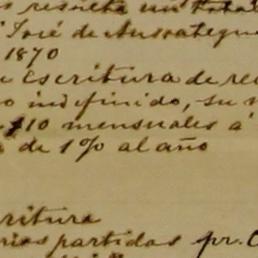 s resulta un total
José de Aurrategui
1870
Escritura de re
o indefinido, su
$10 mensuales á
de 1% al año
critura
rias partidas pr. C